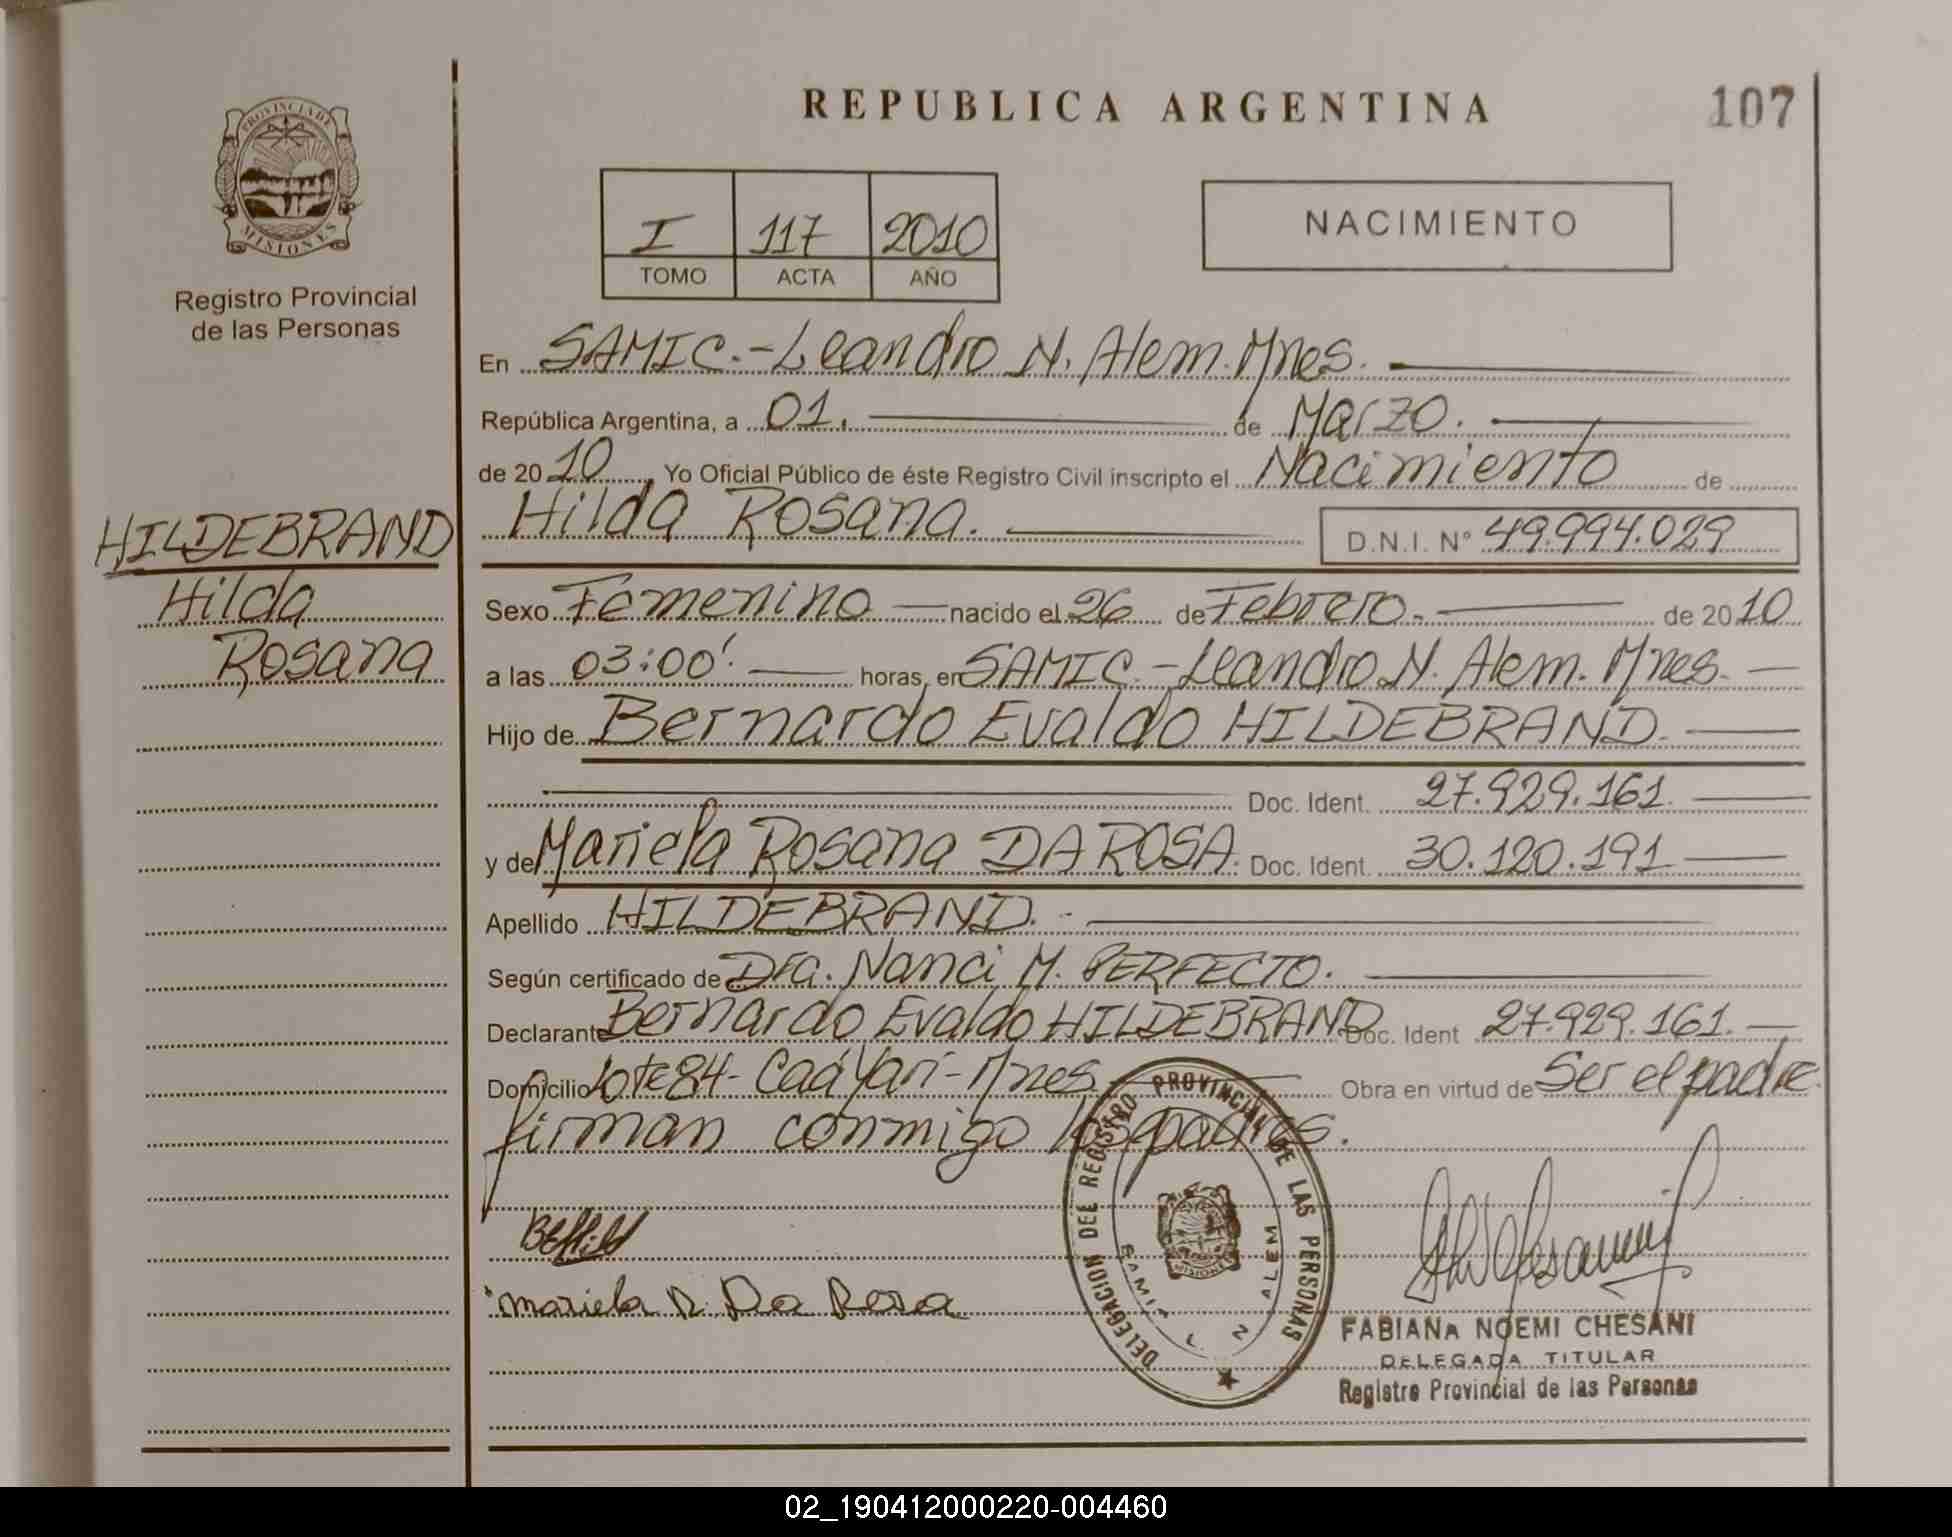 REPUBLICA ARGENTINA
107
PROVINCIA DE
MISIONES
Registro Provincial
de las Personas
I 117 2010
TOMO ACTA AÑO
NACIMIENTO
En SAMIC.-Leandro N. Alem. Mnes.
República Argentina, a 01. de Marzo.
de 2010, Yo Oficial Público de éste Registro Civil inscripto el Nacimiento de
Hilda Rosana. D.N.I. N° 49.994.029
HILDEBRAND
Hilda
Rosana
Sexo Femenino nacido el 26 de Febrero. de 2010
a las 03:00'. horas, en SAMIC.-Leandro N. Alem. Mnes.
Hijo de Bernardo Evaldo HILDEBRAND.
Doc. Ident. 27.929.161.
y de Mariela Rosana DA ROSA. Doc. Ident. 30.120.191
Apellido HILDEBRAND.-
Según certificado de Dra. Nanci M. PERFECTO.
Declarante Bernardo Evaldo HILDEBRAND Doc. Ident 27.929.161.
Domicilio lote 84- Caá Yarí-Mnes. Obra en virtud de Ser el padre.
firman conmigo los padres.
Mariela R. Da Rosa
DELEGACION DEL REGISTRO PROVINCIAL DE LAS PERSONAS
SAMIC L. N ALEM
MISIONES
FABIANA NOEMI CHESANI
DELEGADA TITULAR
Registro Provincial de las Personas
02_190412000220-004460